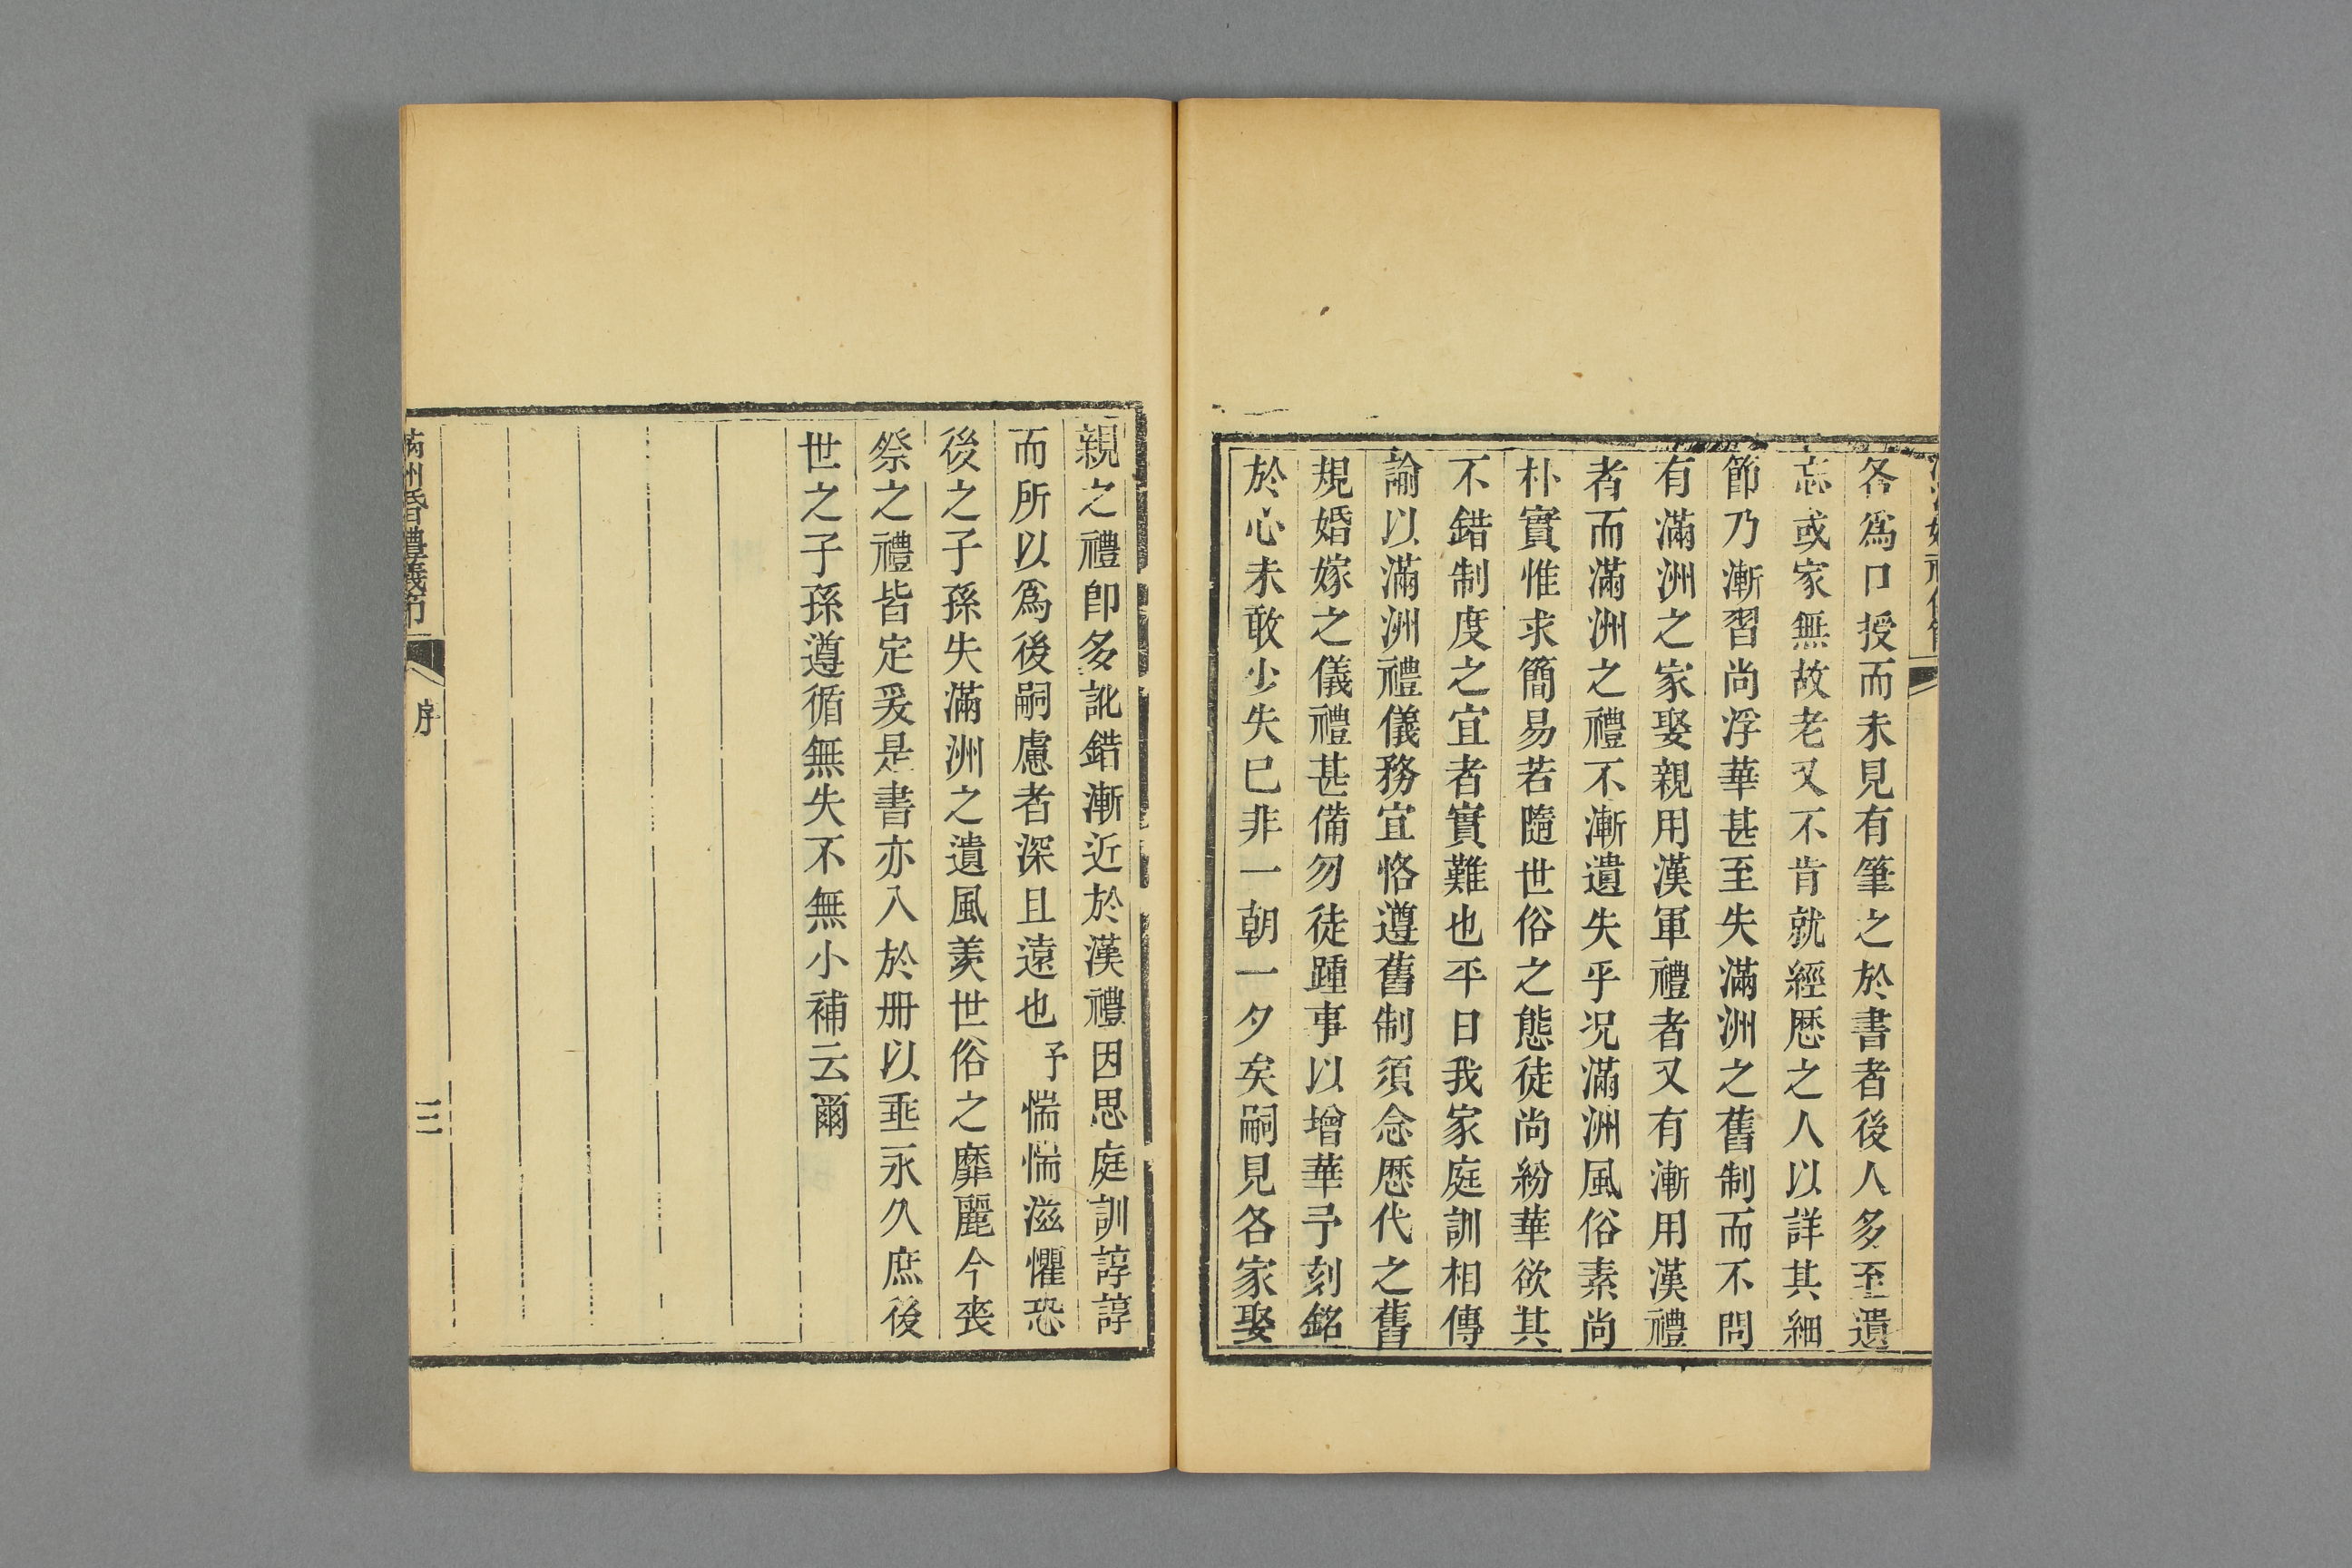 各爲口授而未見有筆之於書者後人多至遺
忘或家無故老又不肯就經歷之人以詳其細
節乃漸習尚浮華甚至失滿洲之舊制而不問
有滿洲之家娶親用漢軍禮者又有漸用漢禮
者而滿洲之禮不漸遺失乎况滿洲風俗素尚
朴實惟求簡易若隨世俗之態徒尚紛華欲其
不錯制度之宜者實難也平日我家庭訓相傳
論以滿洲禮儀務宜恪遵舊制須念歷代之舊
規婚嫁之儀禮甚備勿徒踵事以增華予刻銘
於心未敢少失已非一朝一夕矣嗣見各家娶
親之禮卽多訛錯漸近於漢禮因思庭訓諄諄
而所以爲後嗣慮者深且遠也予惴惴滋懼恐
後之子孫失滿洲之遺風羨世俗之靡麗今喪
祭之禮皆定爰是書亦入於册以垂永久庶後
世之子孫遵循無失不無小補云爾
滿洲婚禮儀節
序
三